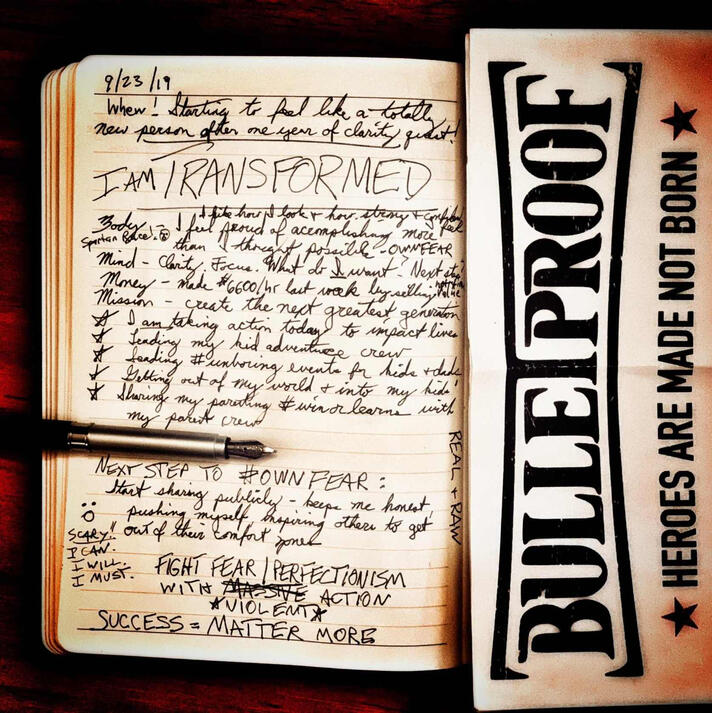 9/23/19
Whew! Starting to feel like a totally
new person after one year of clarity quest!
I AM TRANSFORMED
I like how I look + how strong & confident I feel
Body - I feel proud of accomplishing more
Spartan Race!
than I thought possible - OWNFEAR
Mind - Clarity, Focus. What do I want? Next step?
Money - made $6600/hr last week by selling value
Mission - create the next greatest generation
☆ I am taking action today to impact lives
☆ Leading my kid adventure crew
☆ Leading #unboring events for kids + dads!
☆ Getting out of my world & into my kids'
☆ Sharing my parenting #win or learns with
my parent crew
REAL + RAW
NEXT STEP TO #OWNFEAR:
Start sharing publicly - keeps me honest,
pushing myself, inspiring others to get
out of their comfort zones
SCARY!!
I CAN.
I WILL.
I MUST.
FIGHT FEAR/PERFECTIONISM
WITH MASSIVE ACTION
*VIOLENT*
SUCCESS = MATTER MORE
BULLETPROOF
★ HEROES ARE MADE NOT BORN ★